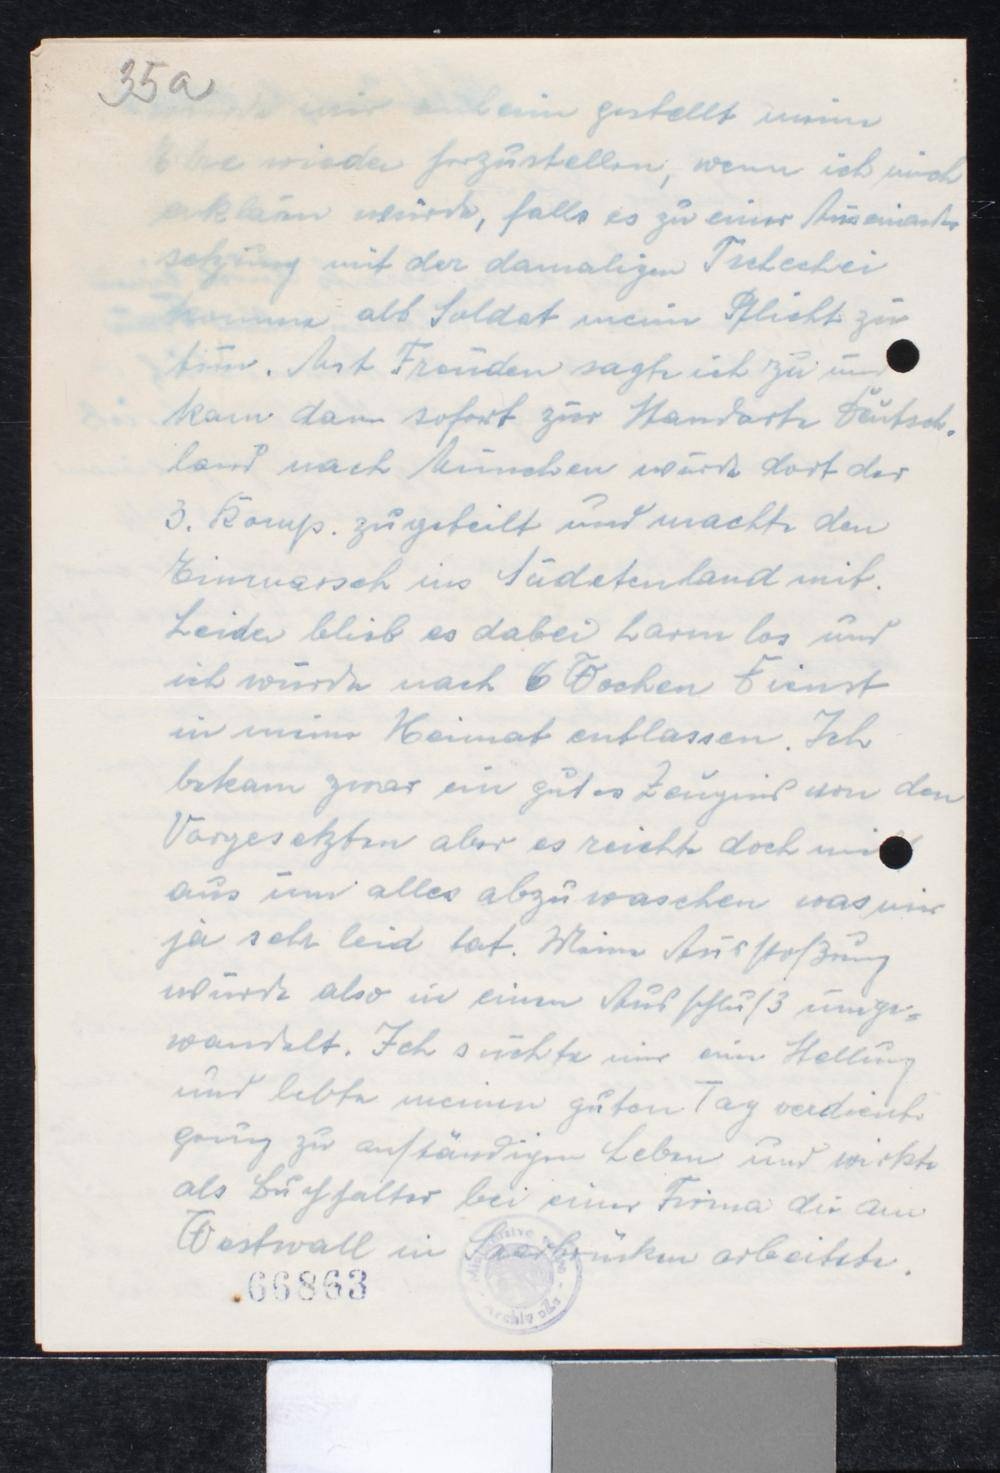 35a
wurde mir anheim gestellt meine
Ehre wieder herzustellen, wenn ich mich
erklären würde, falls es zu einer Auseinander
setzung mit der damaligen Tschechei
komme als Soldat meine Pflicht zu
tun. Mit Freuden sagte ich zu und
kam dann sofort zur Standarte Deutsch-
land nach München wurde dort der
3. Komp. zugeteilt und machte den
Einmarsch ins Sudetenland mit.
Leider blieb es dabei harmlos und
ich wurde nach 6 Wochen Dienst
in meine Heimat entlassen. Ich
bekam zwar ein gutes Zeugnis von den
Vorgesetzten aber es reichte doch
aus um alles abzuwaschen was mir
ja sehr leid tat. Meine Ausstoßung
wurde also in einen Ausschluß umge=
wandelt. Ich suchte mir eine Stellung
und lebte meinen guten Tag verdiente
genug zu anständigen Leben und wirkte
als Buchhalter bei einer Firma die am
Westwall in Saarbrücken arbeitete.
66863